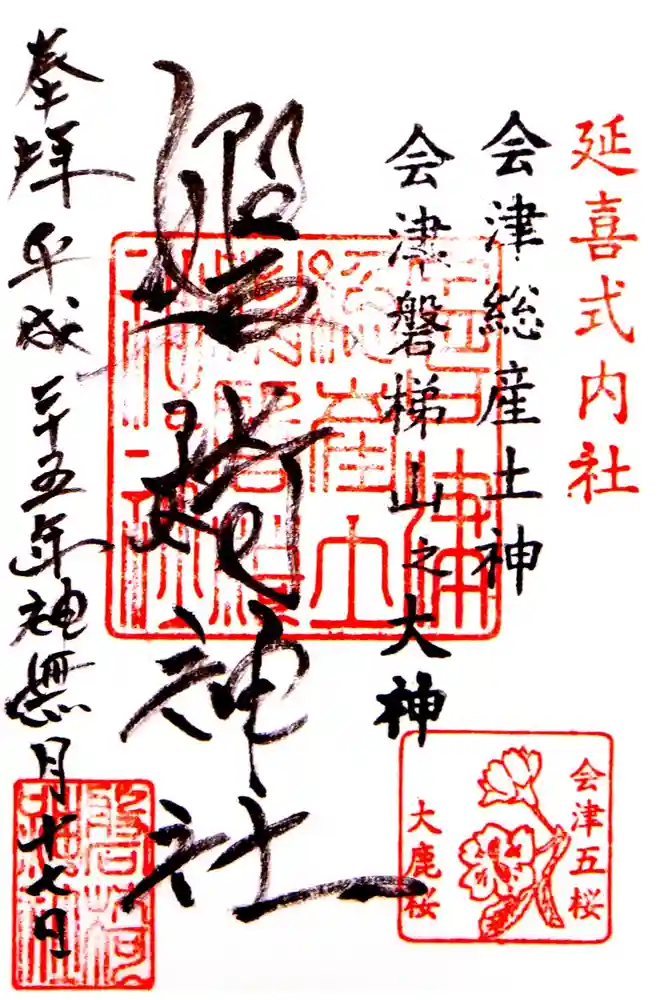 延喜式内社
会津総産土神
会津磐梯山之大神
磐椅神社
奉拝 平成二十五年神無月十七日
会津五桜
大鹿桜